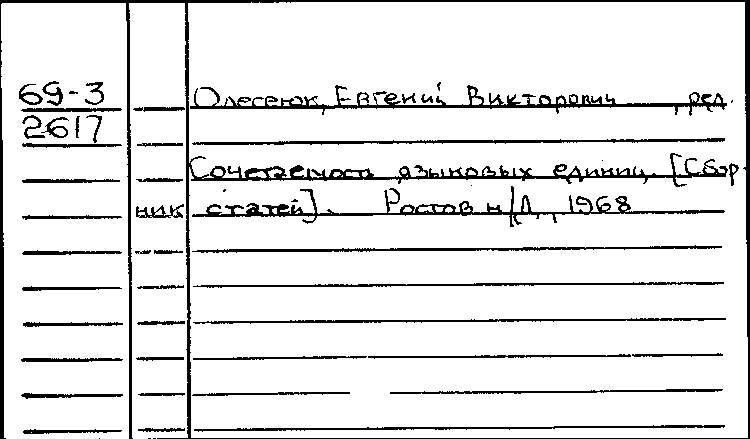 69-3 Олесеюк, Евгений Викторович, ред.
2617
Сочетаемость языковых единиц. [Сбор-
ник статей]. Ростов н/Д, 1968